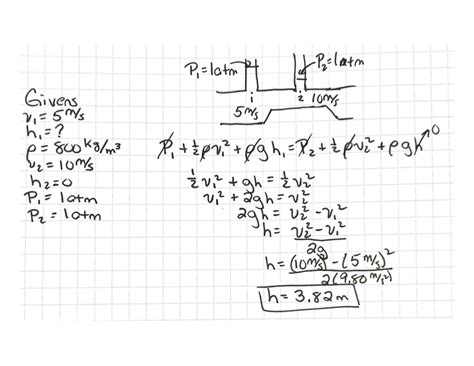 P₁=1atm P₂=1atm
1 2
5m/s 10m/s
Givens
v₁=5m/s
h₁=?
ρ=800kg/m³
v₂=10m/s
h₂=0
P₁=1atm
P₂=1atm
P₁+½ρv₁²+ρgh₁=P₂+½ρv₂²+ρgh 0
½v₁²+gh=½v₂²
v₁²+2gh=v₂²
2gh=v₂²-v₁²
h=(v₂²-v₁²)/2g
h=((10m/s)²-(5m/s)²)/2(9.80m/s²)
h=3.82m